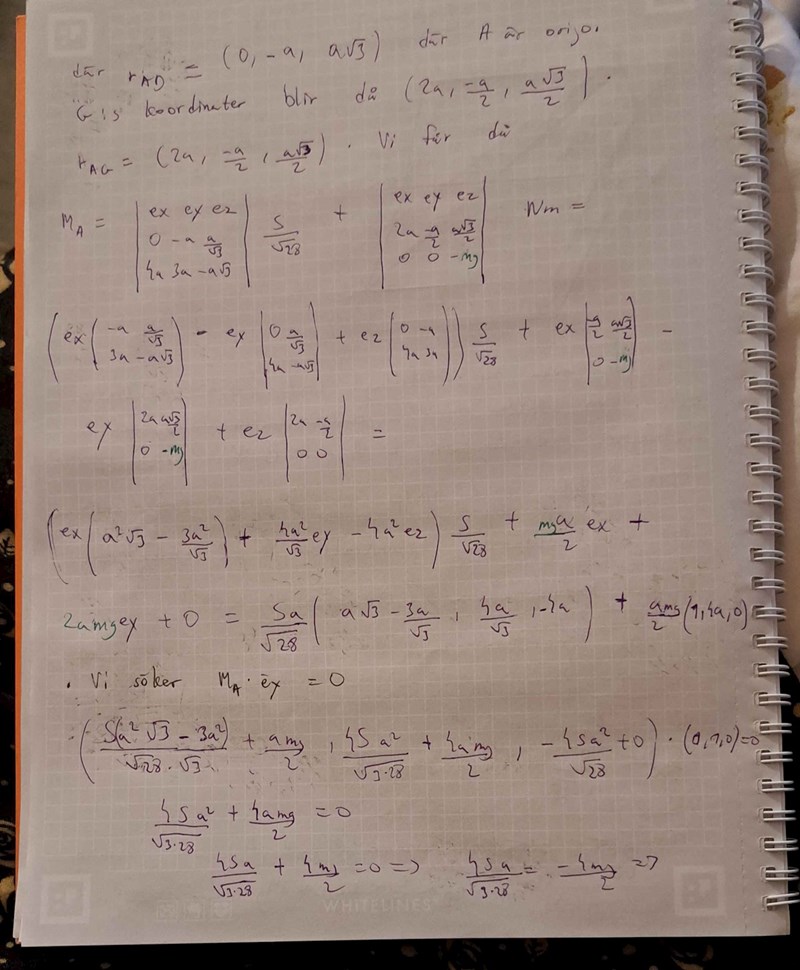 där r_AD = (0, -a, a√3) där A är origo.
G:s koordinater blir då (2a, -a/2, a√3/2).
r_AG = (2a, -a/2, a√3/2). Vi får då
M_A = |ex ey ez; 0 -a a/√3; 4a 3a -a√3| S/√28 + |ex ey ez; 2a -a/2 a√3/2; 0 0 -mg| Nm =
(ex(-a a/√3; 3a -a√3) - ey|0 a/√3; 4a -a√3| + ez(0 -a; 4a 3a)) S/√28 + ex|-a/2 a√3/2; 0 -mg| -
ey|2a a√3/2; 0 -mg| + ez|2a -a/2; 0 0| =
(ex(a²√3 - 3a²/√3) + 4a²/√3 ey - 4a² ez) S/√28 + mga/2 ex +
2amgey + 0 = Sa/√28 (a√3 - 3a/√3, 4a/√3, -4a) + amg/2 (1, 4a, 0)
. Vi söker M_A · ex = 0
(S(a²√3 - 3a²)/√28·√3 + amg/2, 4Sa²/√3·28 + 4amg/2, -4Sa²/√28 + 0) · (0,1,0)=0
4Sa²/√3·28 + 4amg/2 = 0
4Sa/√3·28 + 4mg/2 = 0 => 4Sa/√3·28 = -4mg/2 =>
WHITELINES